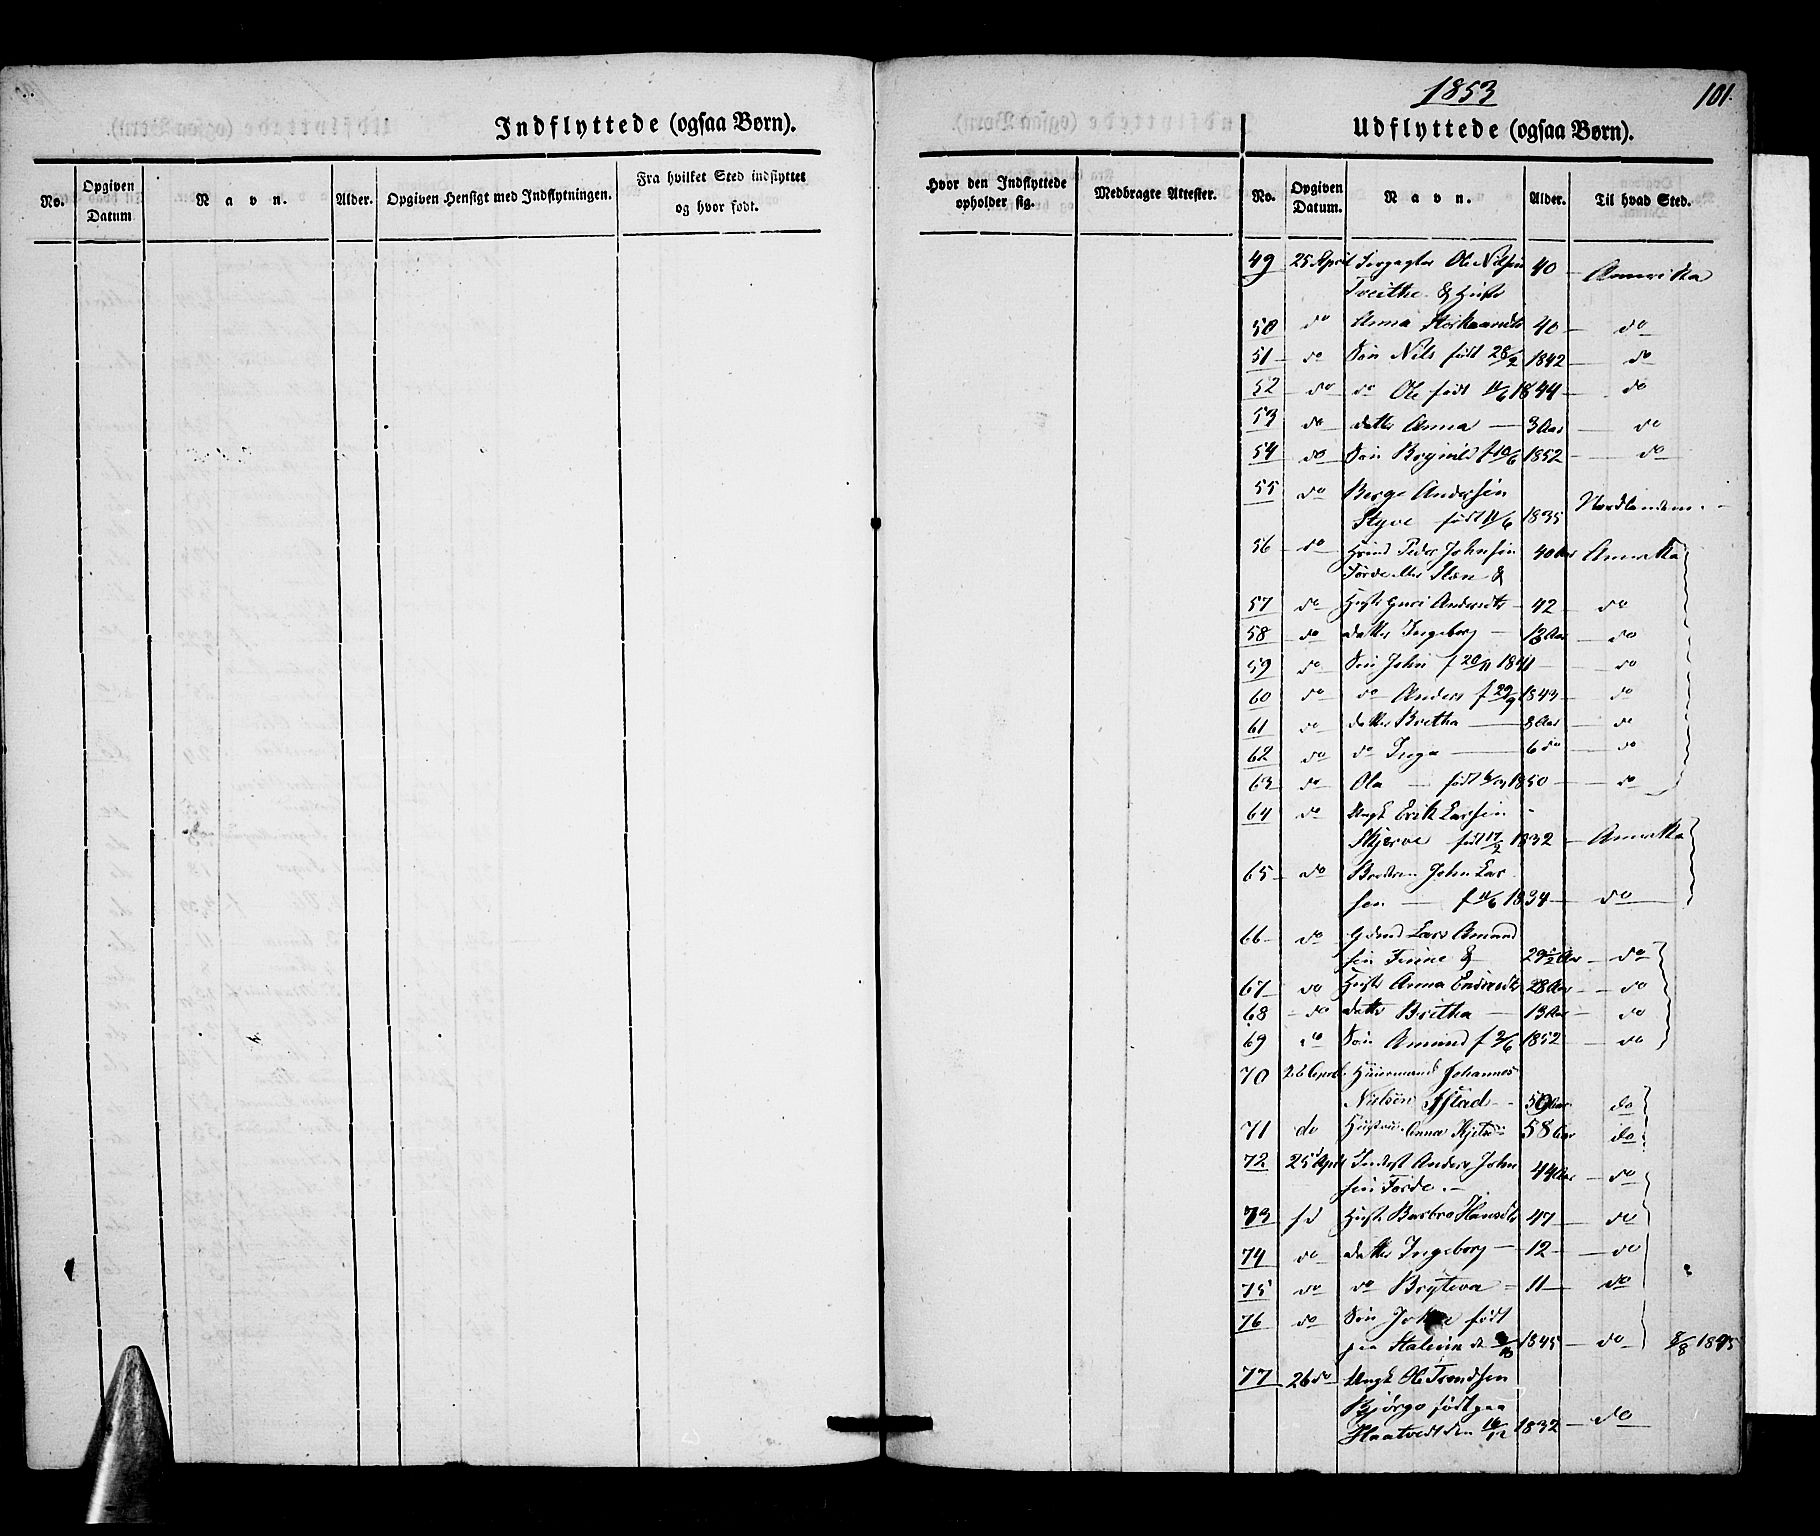 1853
101.
Indflyttede (ogsaa Børn).
Udflyttede (ogsaa Børn).
No. Opgiven Datum Navn. Alder. Opgiven Hensigt med Indflytningen. Fra hvilket Sted indflyttet og hvor født.
Hvor den Indflyttede opholder sig. Medbragte Attester. No. Opgiven Datum. Navn. Alder. Til hvad Sted.
49 25 April Ole Nilsen 40 Amerika
Tveithe & Hustr
50 do Anna 40 do
51 do Søn Nils født 28/2 1842 do
52 do do Ole født 11/6 1844 do
53 do datter Anna 3 Aar do
54 do Søn f 10/6 1852 do
55 do Børge Andersen Nordlandene.
Styve født 11/6 1835
56 do Peder Johnsen 40 Aar Amerika
Førde eller &
57 do Hustr Guri Andersdtr 42 do
58 do datter Ingeborg 13 Aar do
59 do Søn John f 20/11 1841 do
60 do do Anders f 29/9 1843 do
61 do datter Bretha 8 Aar do
62 do do Inga 6 do do
63 do Ola født 1850 do
64 do Ungk Erik Larsen
Skjerve født 17/2 1832 Amerika
65 do Brodren John Lar
sen f 11/6 1834 do
66 do Gdmd Lars Amund
sen Finne & 29 1/2 Aar do
67 do Hustr Anna 28 Aar do
68 do datter Britha 13 Aar do
69 do Søn Amund f 2/6 1852 do
70 26 April Huusmand Johannes
Nielsen 59 Aar do
71 do Hustrue Anna 58 Aar do
72 25 April Inderst Anders John 44 Aar do
sen Førde.
73 Hustr Barbro Hansdtr 47 do
74 do datter Ingeborg 12 do
75 do do Bryteva 11 do
76 do Søn født
paa d 1845 do 8/8 1845
77 26 do Ungk Ole Trondsen
Bjørgo født paa
den 16/12 1832 do